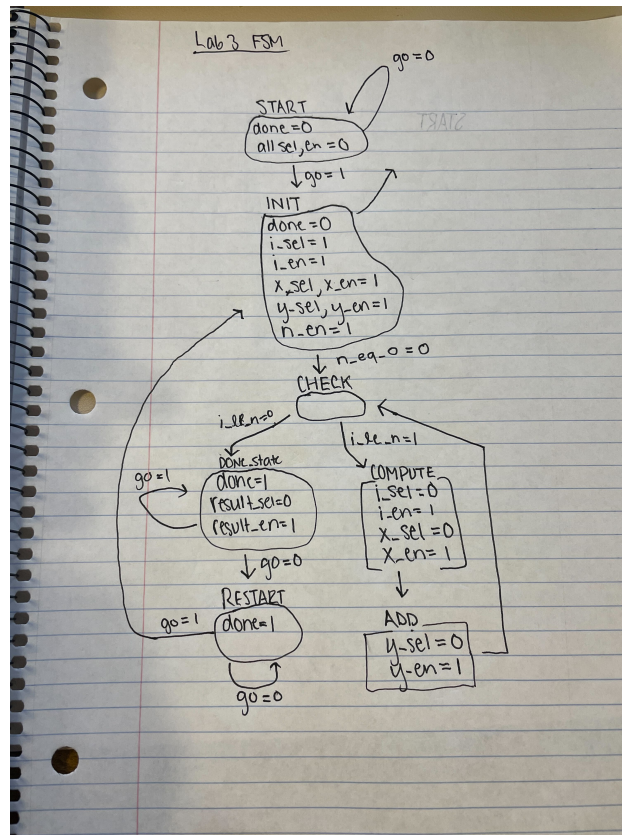 Lab 3 FSM
go=0
START
done=0
all sel, en=0
START
go=1
INIT
done=0
i_sel=1
i_en=1
x_sel, x_en=1
y_sel, y_en=1
n_en=1
n_eq_0=0
CHECK
i_le_n=0
i_le_n=1
DONE_state
go=1
done=1
result_sel=0
result_en=1
COMPUTE
i_sel=0
i_en=1
x_sel=0
x_en=1
go=0
RESTART
go=1
done=1
go=0
ADD
y_sel=0
y_en=1